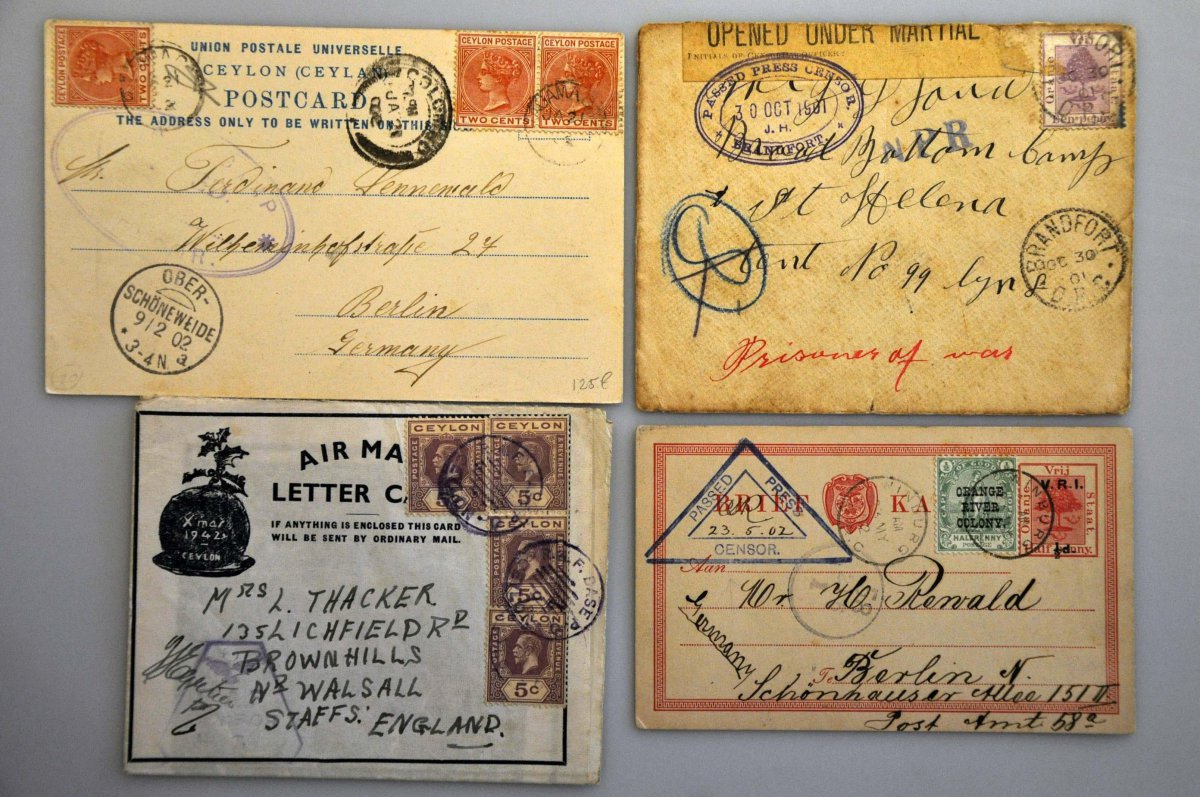 UNION POSTALE UNIVERSELLE
CEYLON (CEYLAN)
POSTCARD
THE ADDRESS ONLY TO BE WRITTEN ON THIS
TWO CENTS
CEYLON POSTAGE
TWO CENTS
CEYLON POSTAGE
TWO CENTS
Ferdinand Sennewald
Wilhelminenhofstraße 24
Berlin
Germany
OBER-
SCHÖNEWEIDE
9/2 02
3-4N
125€
OPENED UNDER MARTIAL
PASSED PRESS CENSOR.
30 OCT 1901
J. H.
BRANDFORT
Camp
St Helena
Tent No 99
BRANDFORT
OC 30
01
Prisoner of war
AIR MA
LETTER C
IF ANYTHING IS ENCLOSED THIS CARD
WILL BE SENT BY ORDINARY MAIL.
Xmas
1942
CEYLON
CEYLON
CEYLON
POSTAGE
REVENUE
5c
5c
POSTAGE
REVENUE
5c
MRS L. THACKER
135 LICHFIELD RD
BROWNHILLS
NR WALSALL
STAFFS: ENGLAND.
BRIEF KA
PASSED PRESS
23.5.02
CENSOR.
ORANGE
RIVER
COLONY.
HALFPENNY
Vrij
V.R.I.
Staat
½d.
Aan
Mr H. Rewald
Germany
To Berlin N.
Schönhauser Allee 151 II
Post Amt 58a